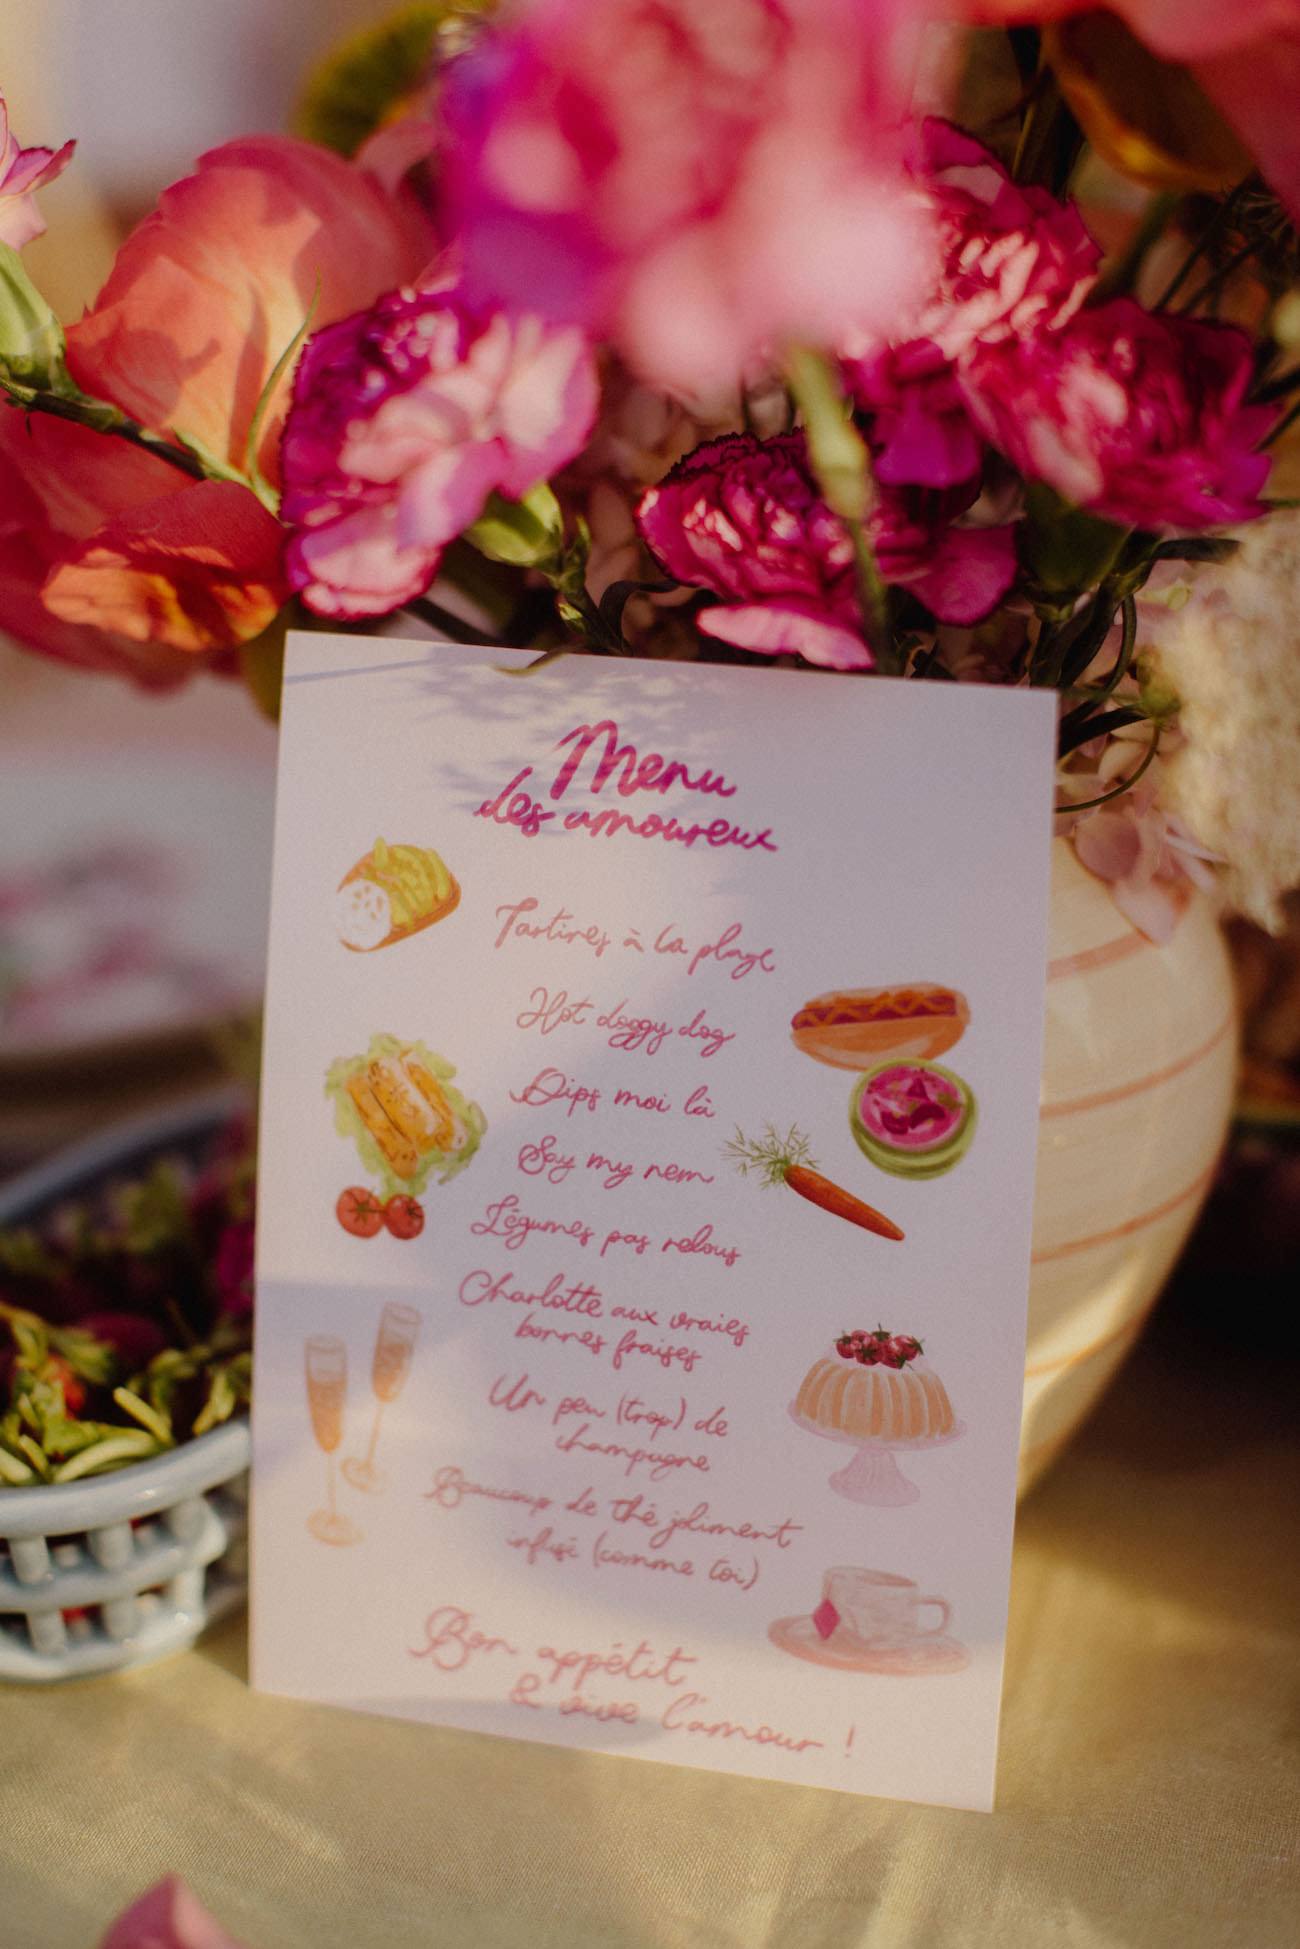 Menu
des amoureux
Tartines à la plage
Hot doggy dog
Dips moi là
Say my nem
Légumes pas relous
Charlotte aux vraies
bonnes fraises
Un peu (trop) de
champagne
Beaucoup de thé joliment
infusé (comme toi)
Bon appétit
& vive l'amour !